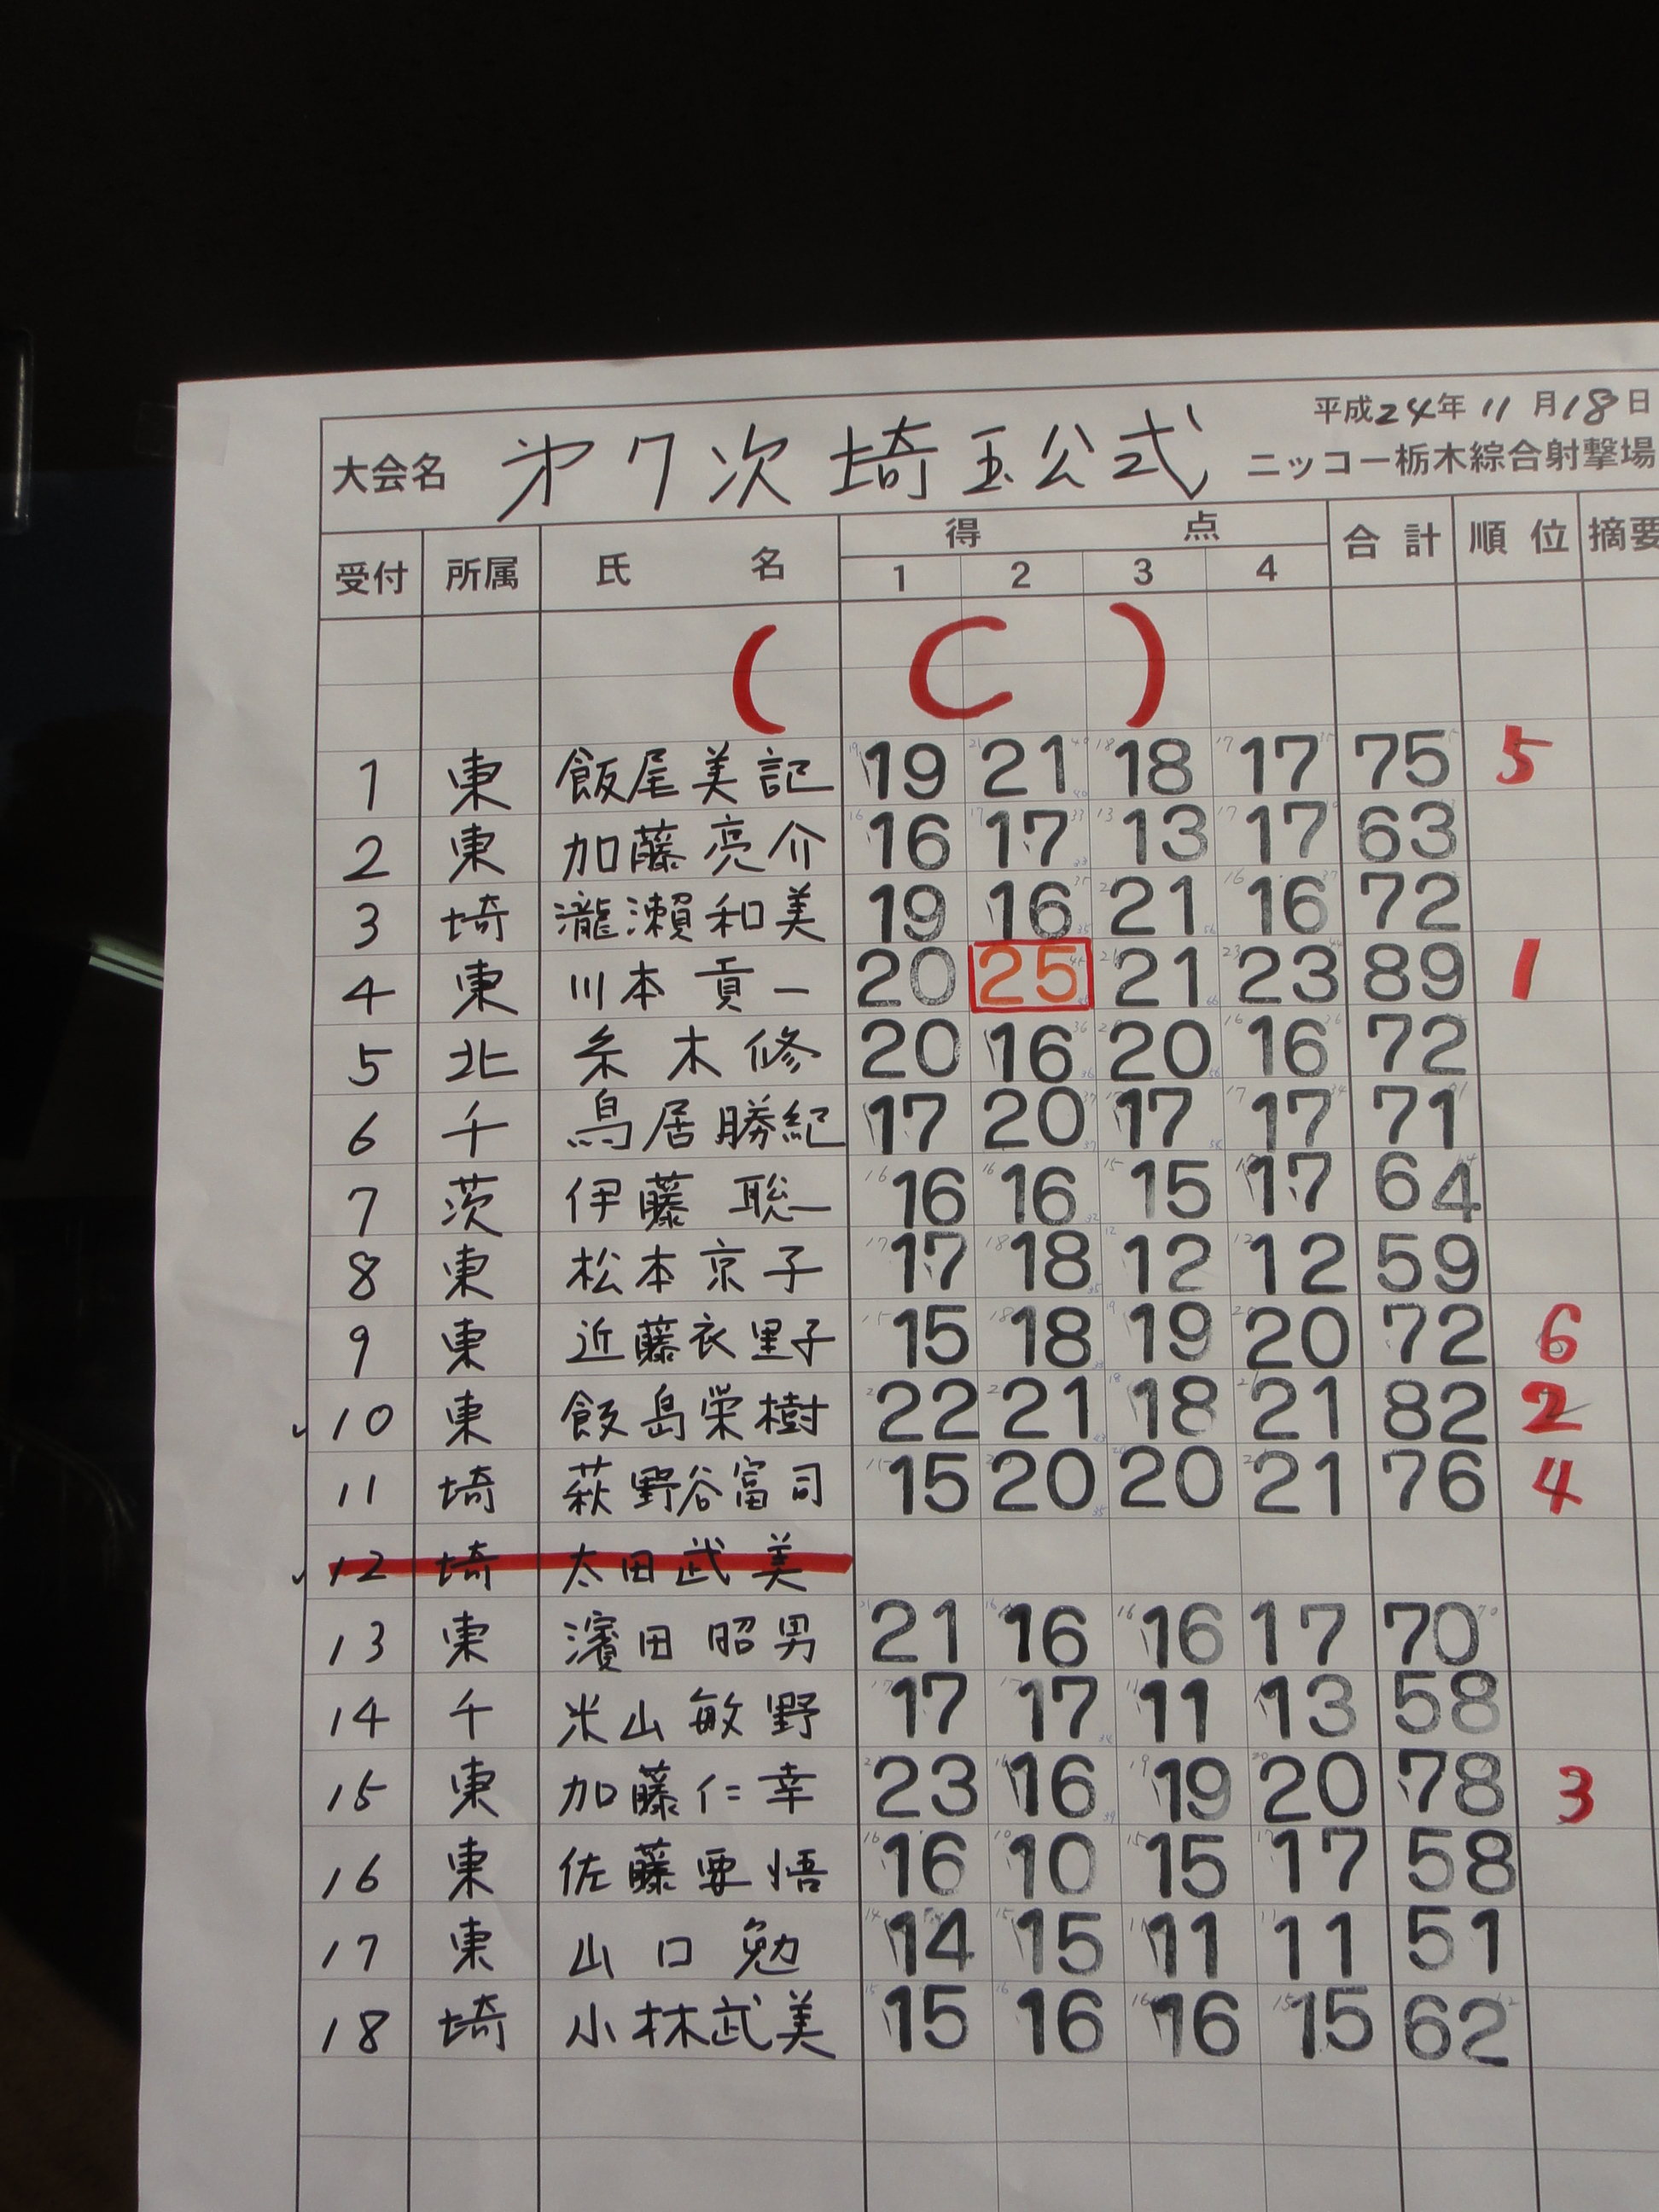 平成24年11月18日
大会名 第7次埼玉公式 ニッコー栃木綜合射撃場
受付 所属 氏名 得点 合計 順位 摘要
1 2 3 4
(C)
1 東 飯尾美記 19 21 18 17 75 5
2 東 加藤亮介 16 17 13 17 63
3 埼 瀧瀬和美 19 16 21 16 72
4 東 川本貢一 20 25 21 23 89 1
5 北 糸木修 20 16 20 16 72
6 千 鳥居勝紀 17 20 17 17 71
7 茨 伊藤聡一 16 16 15 17 64
8 東 松本京子 17 18 12 12 59
9 東 近藤衣里子 15 18 19 20 72 6
10 東 飯島栄樹 22 21 18 21 82 2
11 埼 萩野谷富司 15 20 20 21 76 4
12 埼 太田武美
13 東 濱田昭男 21 16 16 17 70
14 千 米山敏野 17 17 11 13 58
15 東 加藤仁幸 23 16 19 20 78 3
16 東 佐藤要悟 16 10 15 17 58
17 東 山口勉 14 15 11 11 51
18 埼 小林武美 15 16 16 15 62